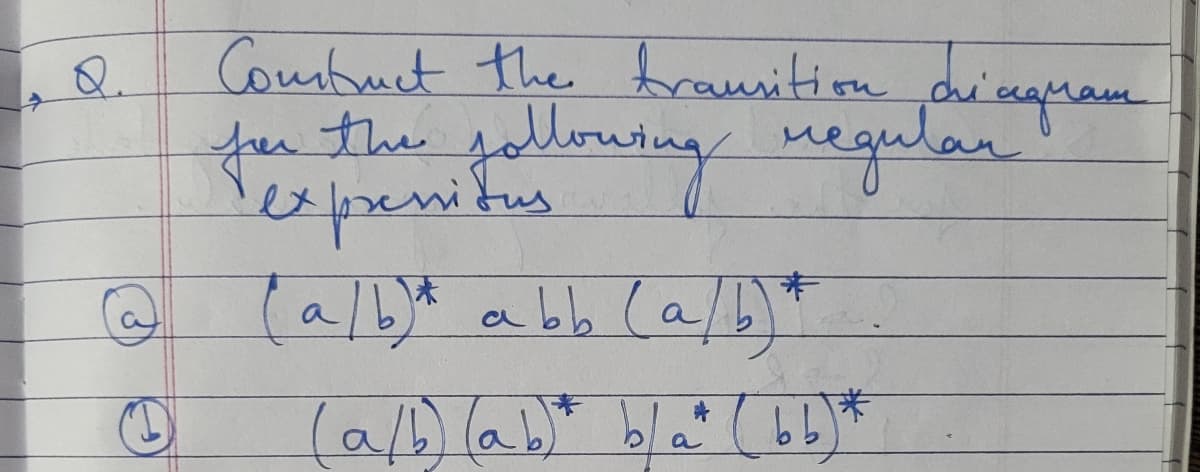 Q. Construct the transition diagram
for the following regular
expressions
(a) (a/b)* abb (a/b)*.
(b) (a/b) (ab)* b/a* (bb)*.